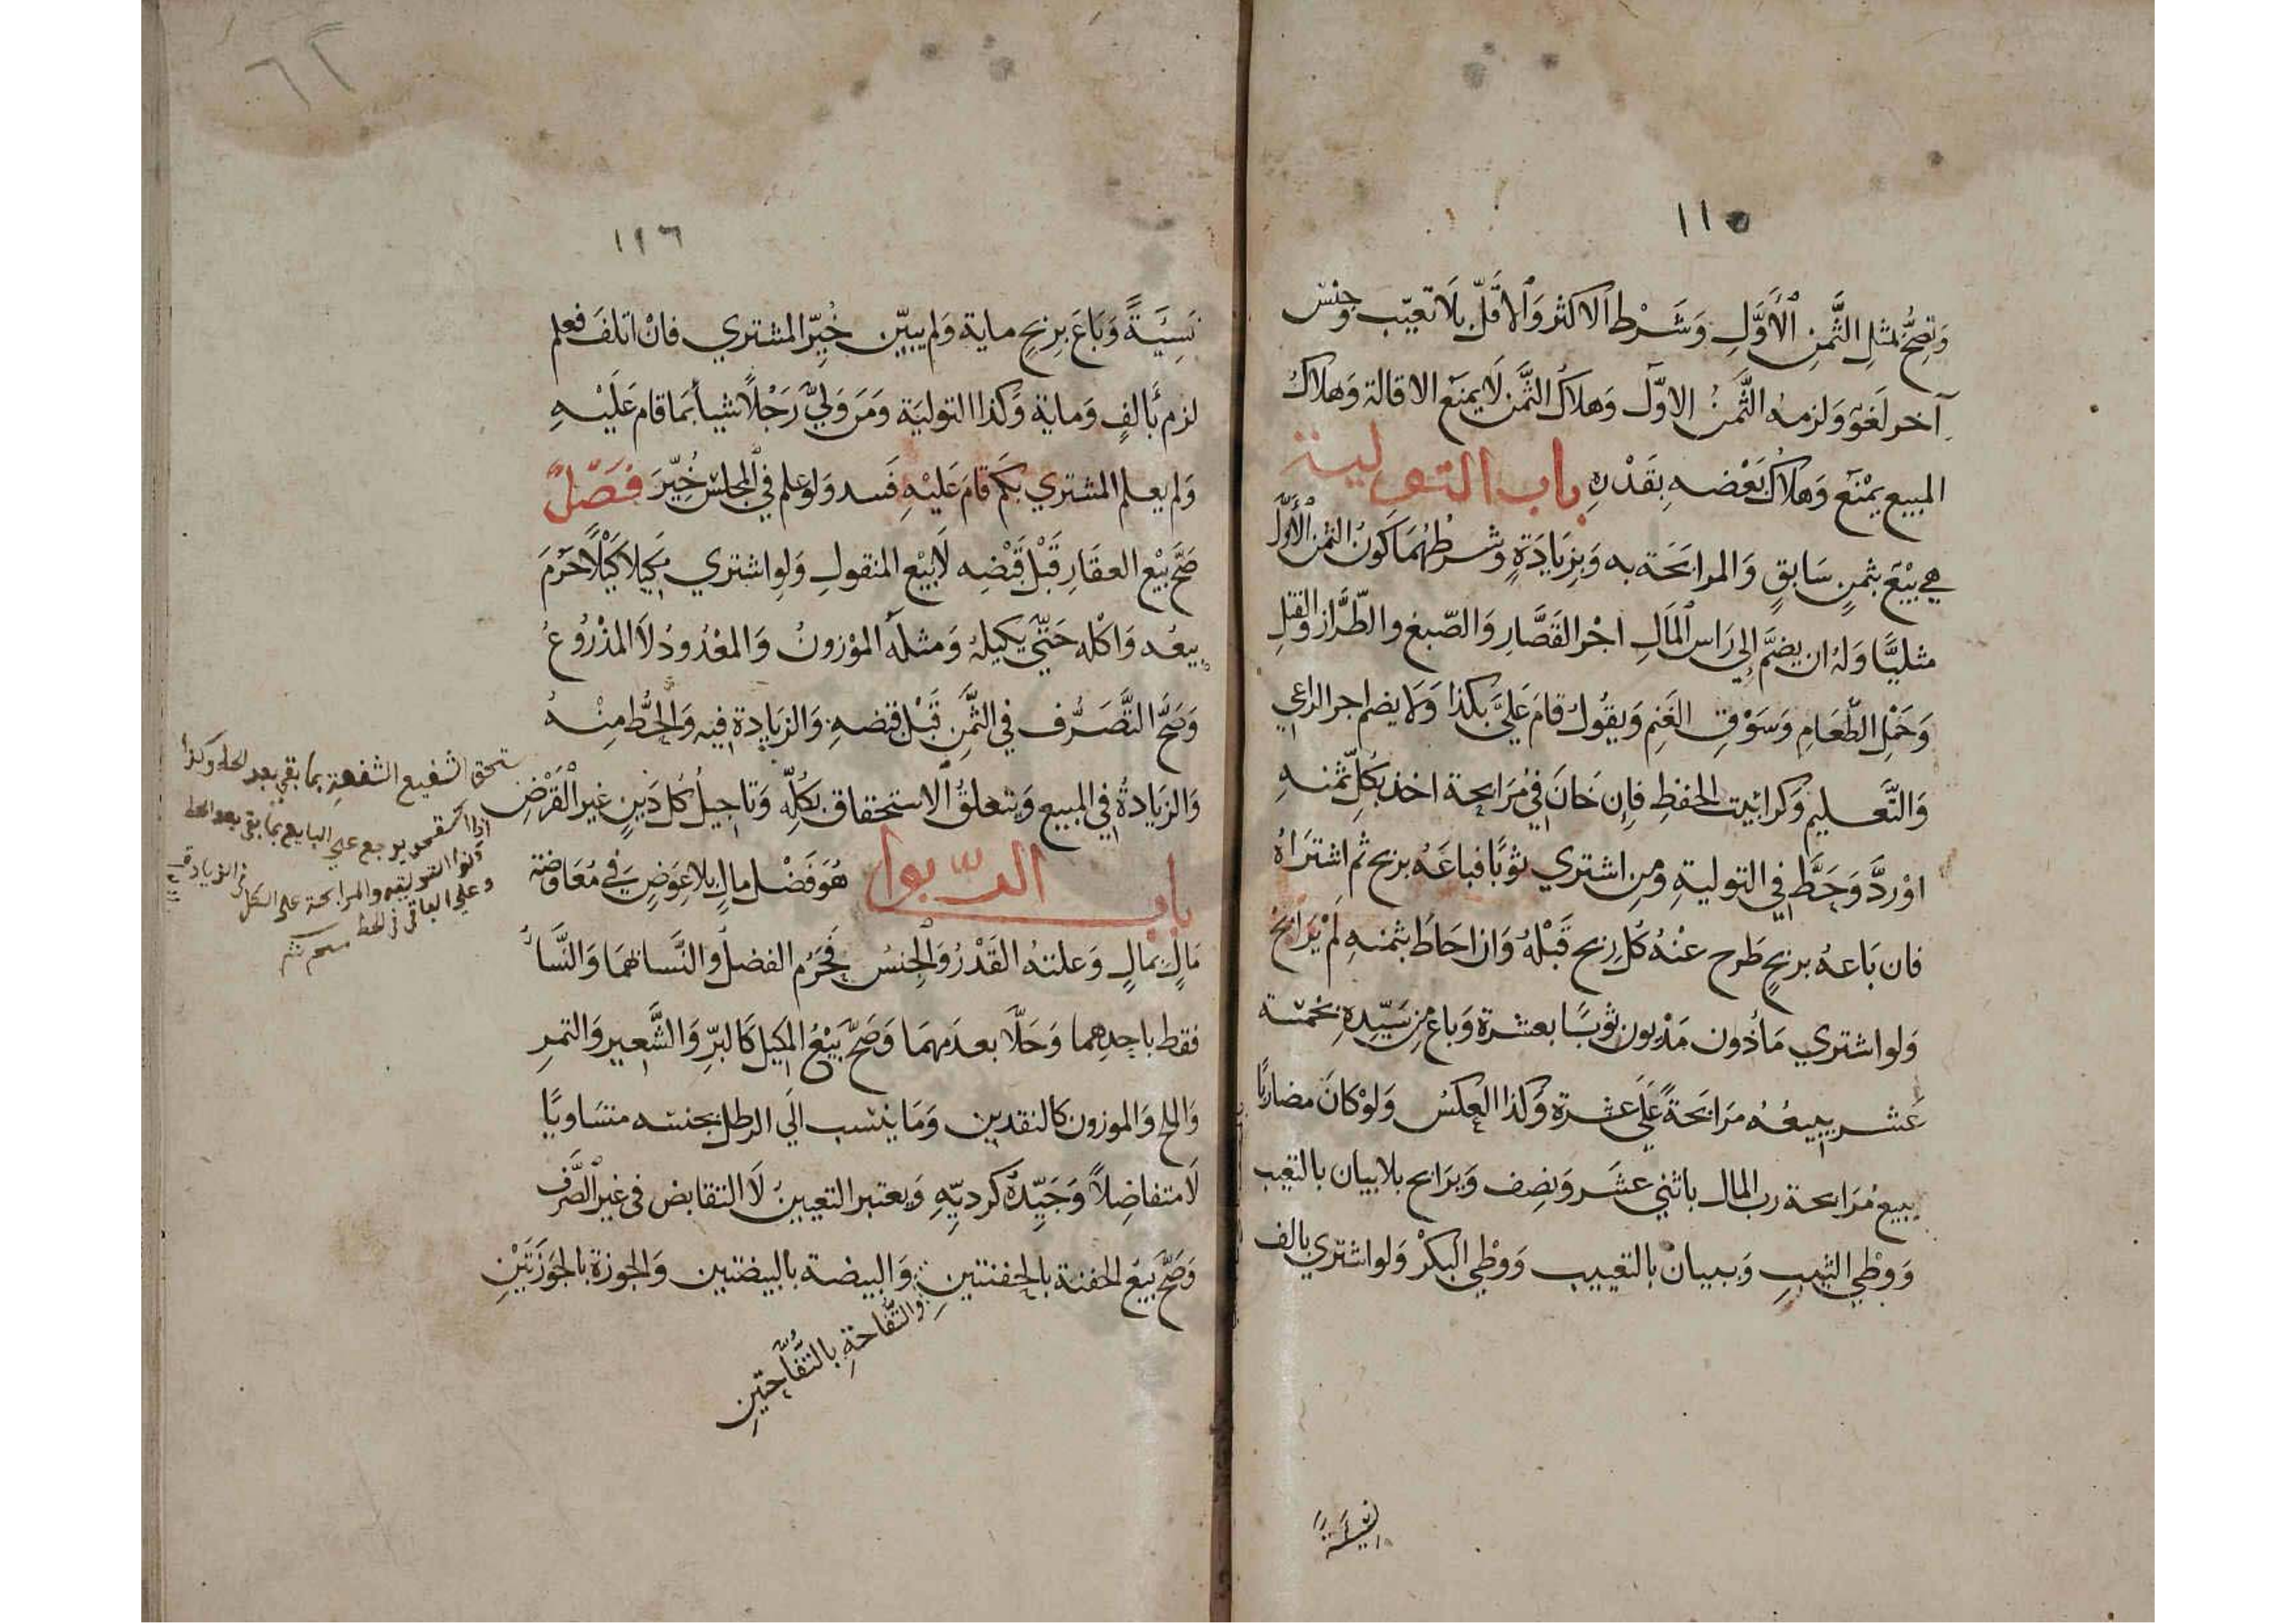 ١١٥
وَتصِحُّ بمثلِ الثَّمنِ الأَوَّلِ وَشَرْط الاكثر وَالاقلّ بلَا تعيّب وجنس
آخر لَغوٌ وَلزمه الثَّمنُ الاوّل وَهلاكُ الثَّمن لَا يمنَع الاقالة وَهلاكُ
المبيع يمْنَع وَهلاكُ بَعْضه بِقَدْرِهِ باب التولية
هي بيْعٌ بثمنٍ سَابقٍ وَالمرابحَة به وَبزيَادَةٍ وشرطُهُمَا كونُ الثمن الأوّل
مثليًّا وَلهُ ان يضمَّ إلى رَاس المَالِ اجْر القَصَّارِ وَالصّبغ والطّرَاز والفتلِ
وَحَمْل الطّعَامِ وَسَوْقِ الغَنِم وَيقُولُ قامَ عَليَّ بكذَا وَلَا يضم اجر الراعي
وَالتَّعليم وَكرا بيت الحفظِ فإِن خَانَ في مُرَابحة اخذ بكُلِّ ثمنهِ
اوْ ردَّ وَحَطَّ في التوليةِ ومن اشتري ثوبًا فباعَهُ بربح ثم اشترَاهُ
فان بَاعهُ بربحٍ طَرح عنْهُ كُلّ ربح قَبْلهُ وَان احَاطَ بثمنهِ لمْ يُرَابحْ
وَلو اشتري مَأذون مَدْيون ثوبًا بعشرة وَباع من سَيِّدِهِ بخمسة
عَشر يبيعُه مرَابحةً عَلَى عشرة وَكذا العكسُ وَلوْ كانَ مضاربًا
يبيع مُرَابحة رب المال باثني عشَر وَنصِف وَيرَابح بلا بيان بالتعيب
وَوطْي الثيبِ وَببيان بالتعييب وَوطْي البكرْ وَلو اشتري بالف
نسيئةً
١١٦
نَسِيَةً وَبَاعَ بربحِ ماية وَلم يبيّن خُيِّر المشتري فانْ اتلفَ فعلم
لزم بَالفٍ وَمايةٍ وَكذا التوليَة وَمَن وَليّ رَجُلًا شيأ بمَا قام عَلَيْهِ
وَلم يعلم المشتري بكم قامَ عَليْهِ فَسد وَلو علم في المجلس خُيِّرَ فَصْلٌ
صَحَّ بَيْع العقَارِ قَبْل قَبْضِه لَا بيْع المنقولِ وَلو اشتري مَكيلًا كيْلًا حَرُمَ
بيعُه وَاكْله حَتّي يكيلهُ وَمثلُه الموْزونُ وَالمعْدُودُ لَا المذْرُوعُ
وَصَحَّ التَّصَرُّف في الثَّمنِ قَبْل قبْضهِ وَالزيَادة فيه وَالحَطُّ مِنْهُ
وَالزيَادةُ في المبيع وَيتعلقُ الاستحقاق بكُلِّه وَتاجيلُ كُل دَينٍ غير القَرْض
باب الرّبوا هُوَ فَضْل مالٍ بلا عِوَضٍ في مُعَاوضة
مَالٍ بمالٍ وَعلتهُ القَدْرُ وَالجنسُ فَحَرُم الفضلُ وَالنَّسا بهمَا وَالنَّسَأ
فقط باحدِهما وَحَلَّا بعدَمهمَا وَصَحَّ بَيْعُ المكيل كَالبُرِّ وَالشَّعيرِ وَالتمرِ
وَالملح وَالموزون كالنقدين وَمَا ينسب الَي الرطل بجنسه متسَاويًا
لَا متفاضِلًا وَجَيِّدهُ كرديّهِ وَيعتبر التعيينُ لَا التقابض في غير الصَّرْف
وَصَحَّ بيْع الحفنة بالحفنتينِ وَالبيضة بالبيضتين وَالجوزة بالجَوْزَتَيْنِ
وَالتُّفَّاحةِ بالتُّفَّاحتَينِ
ستحق الشفيع الشفعة بما بقي بعد الحط وكذا
اذا استحق يرجع علي البايع بما بقي بعد الحط
وكذا التولية والمرابحة علي الكل في الزيادة
وعلي الباقي في الحط
٦٢